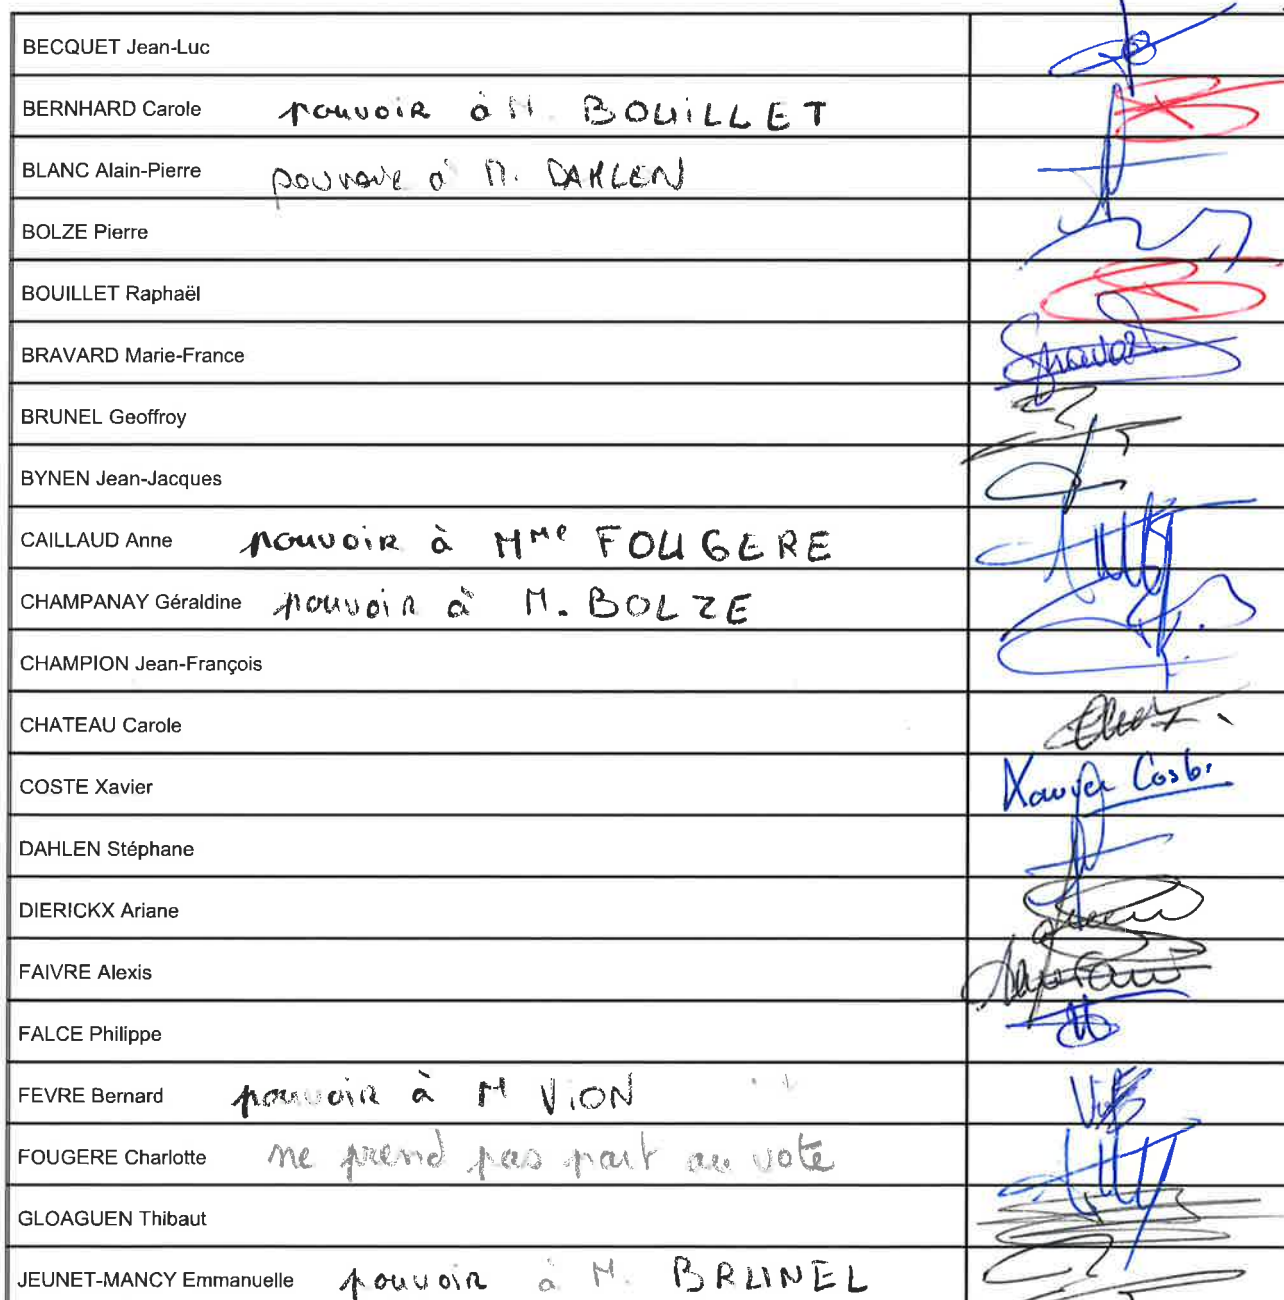 BECQUET Jean-Luc
BERNHARD Carole pouvoir à M. BOUILLET
BLANC Alain-Pierre pouvoir à M. DAHLEN
BOLZE Pierre
BOUILLET Raphaël
BRAVARD Marie-France
BRUNEL Geoffroy
BYNEN Jean-Jacques
CAILLAUD Anne pouvoir à Mme FOUGERE
CHAMPANAY Géraldine pouvoir à M. BOLZE
CHAMPION Jean-François
CHATEAU Carole
COSTE Xavier Xavier Coste
DAHLEN Stéphane
DIERICKX Ariane
FAIVRE Alexis
FALCE Philippe
FEVRE Bernard pouvoir à M VION
FOUGERE Charlotte ne prend pas part au vote
GLOAGUEN Thibaut
JEUNET-MANCY Emmanuelle pouvoir à M. BRUNEL